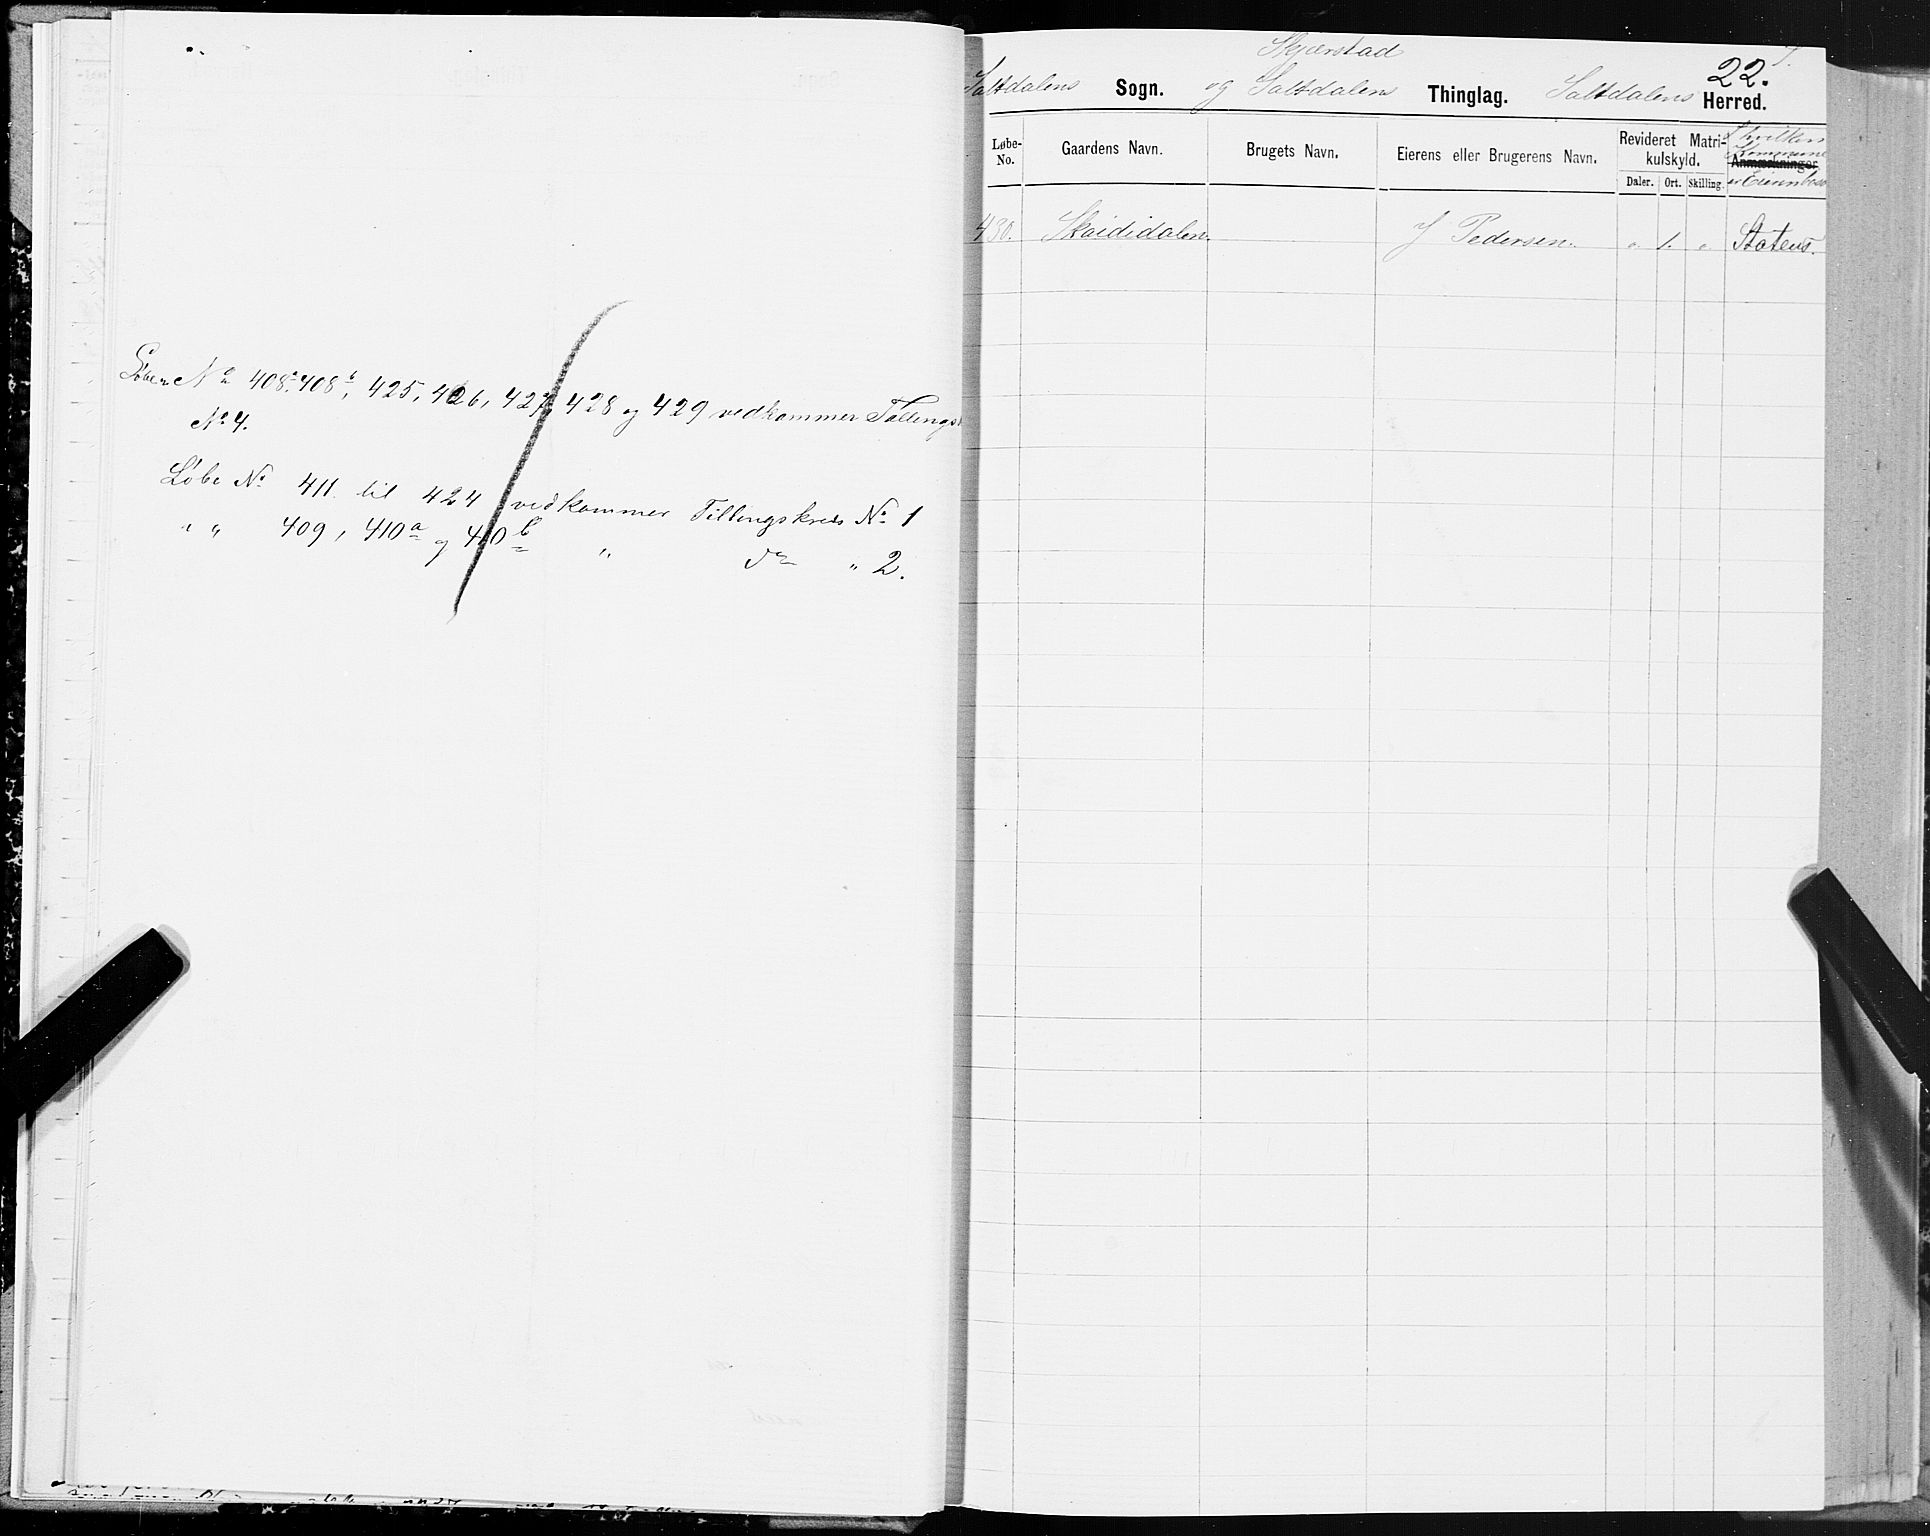 Løbe No 408a, 408b, 425, 426, 427, 428 og 429 vedkommer Tællings
No 4.
Løbe No 411 til 424 vedkommer Tællingskreds No 1
" " 409, 410a og 410b " do " 2.
Skjerstad
22.
Saltdalens Sogn. og Saltdalens Thinglag. Saltdalens Herred.
Løbe-No. Gaardens Navn. Brugets Navn. Eierens eller Brugerens Navn. Revideret Matrikulskyld. I hvilken Kommune Anmærkninger er Eieren bosat
Daler. Ort. Skilling.
430. Skaididalen. J Pedersen. " 1. " Statens.